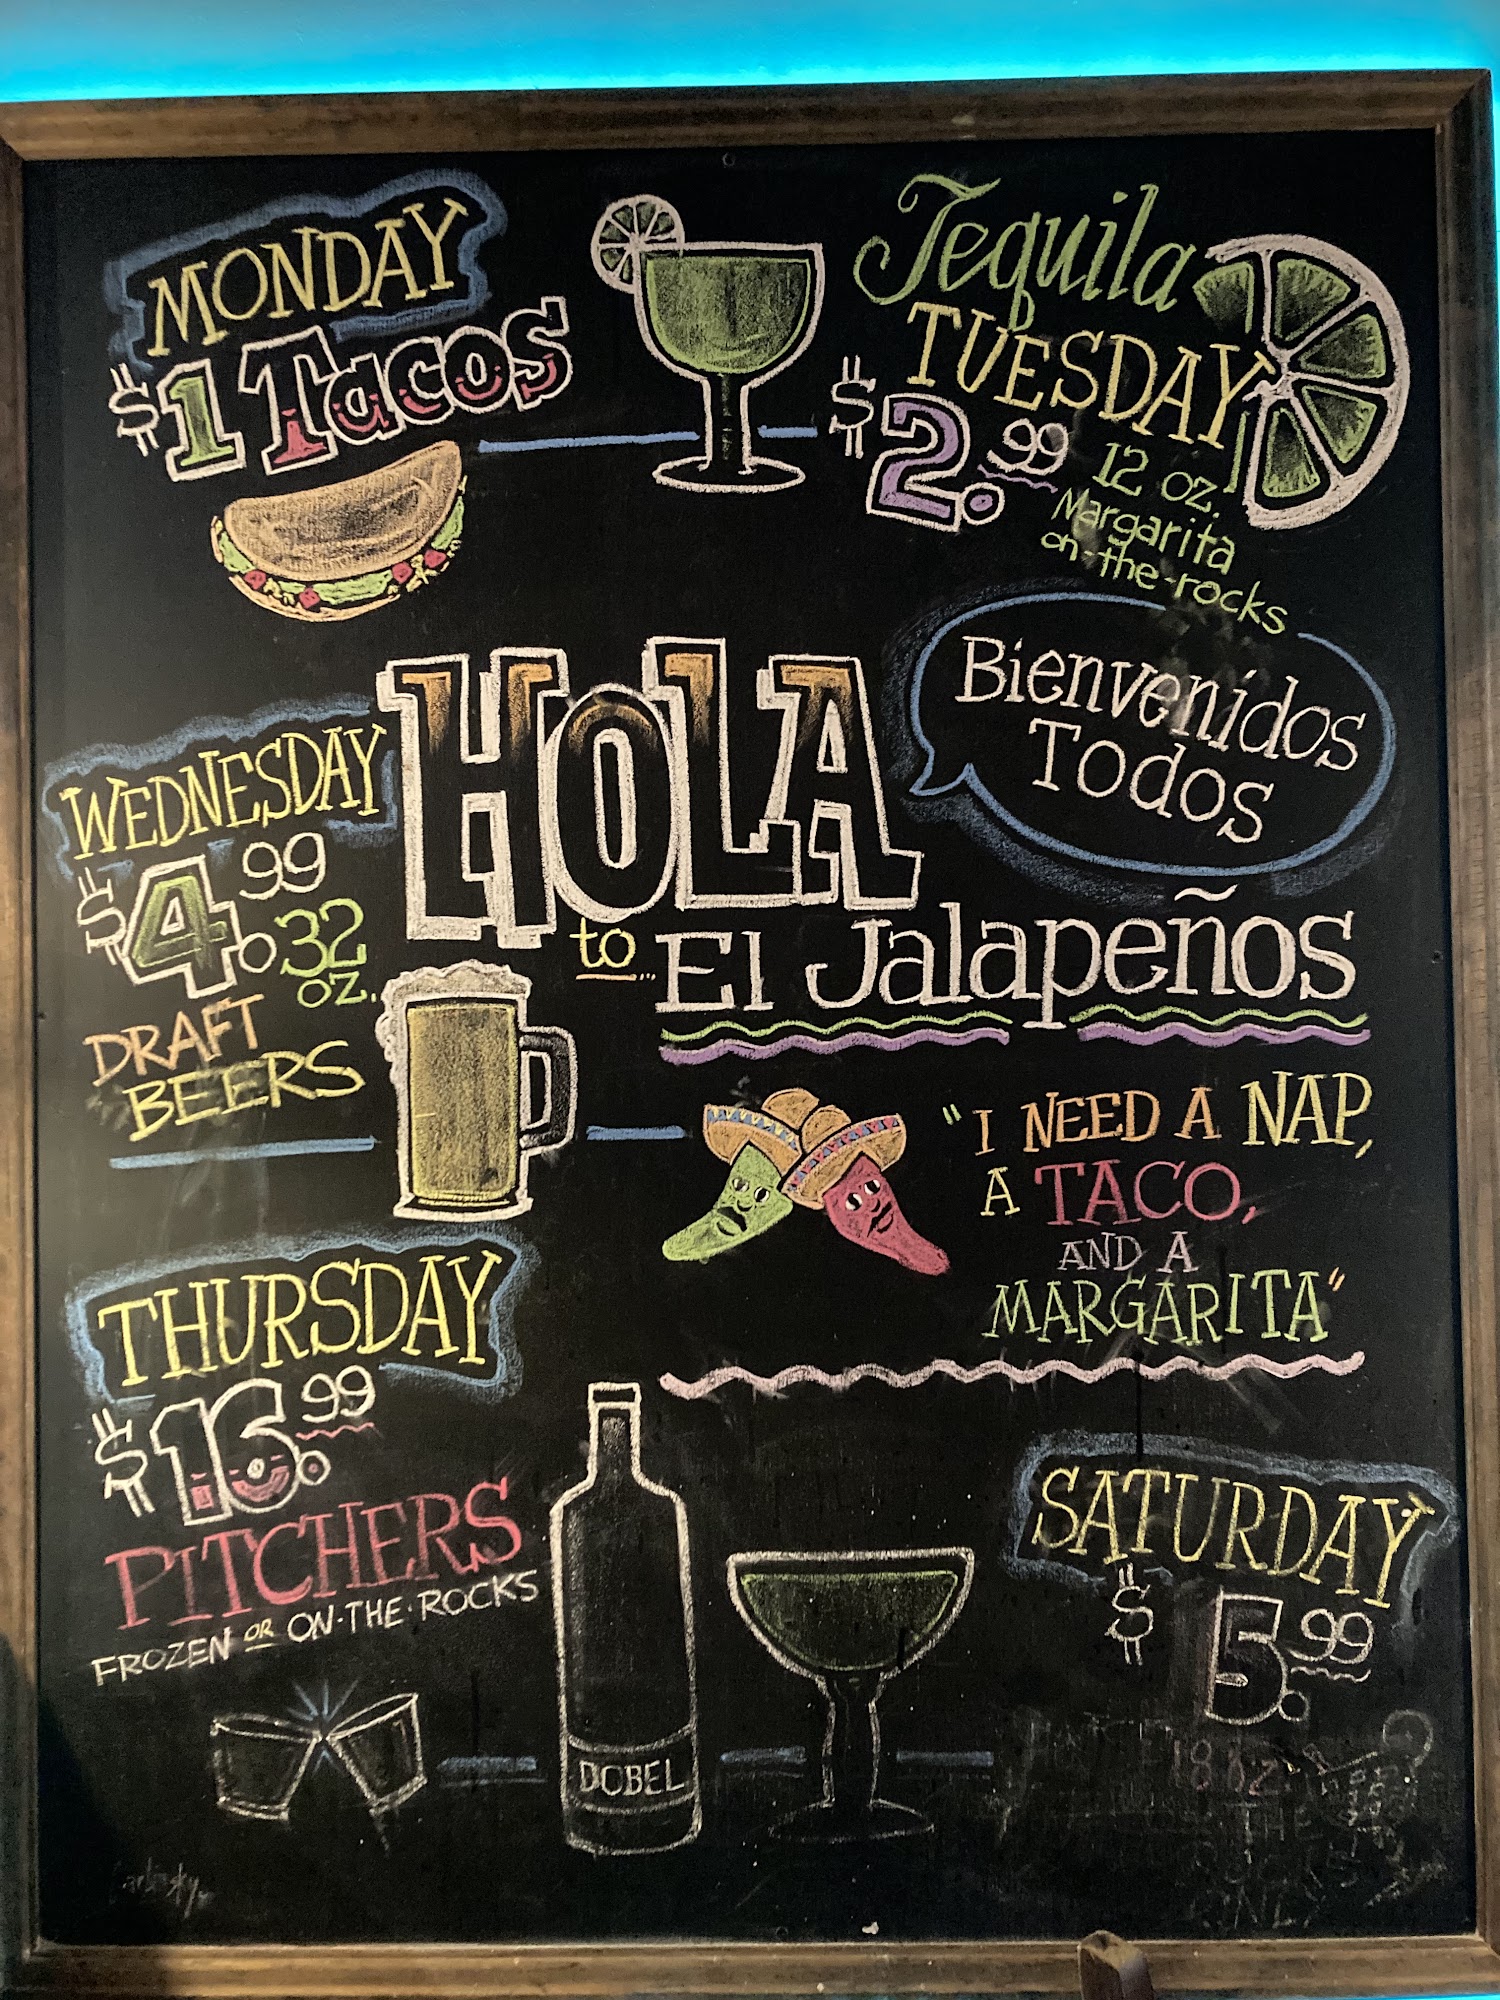 MONDAY
$1 Tacos
Tequila
TUESDAY
$2.99
12 oz.
Margarita
on-the-rocks
HOLA
to... El Jalapeños
Bienvenidos
Todos
WEDNESDAY
$4.99
32
oz.
DRAFT
BEERS
"I NEED A NAP,
A TACO,
AND A
MARGARITA"
THURSDAY
$16.99
PITCHERS
FROZEN OR ON-THE-ROCKS
DOBEL
SATURDAY
$5.99
18 oz.